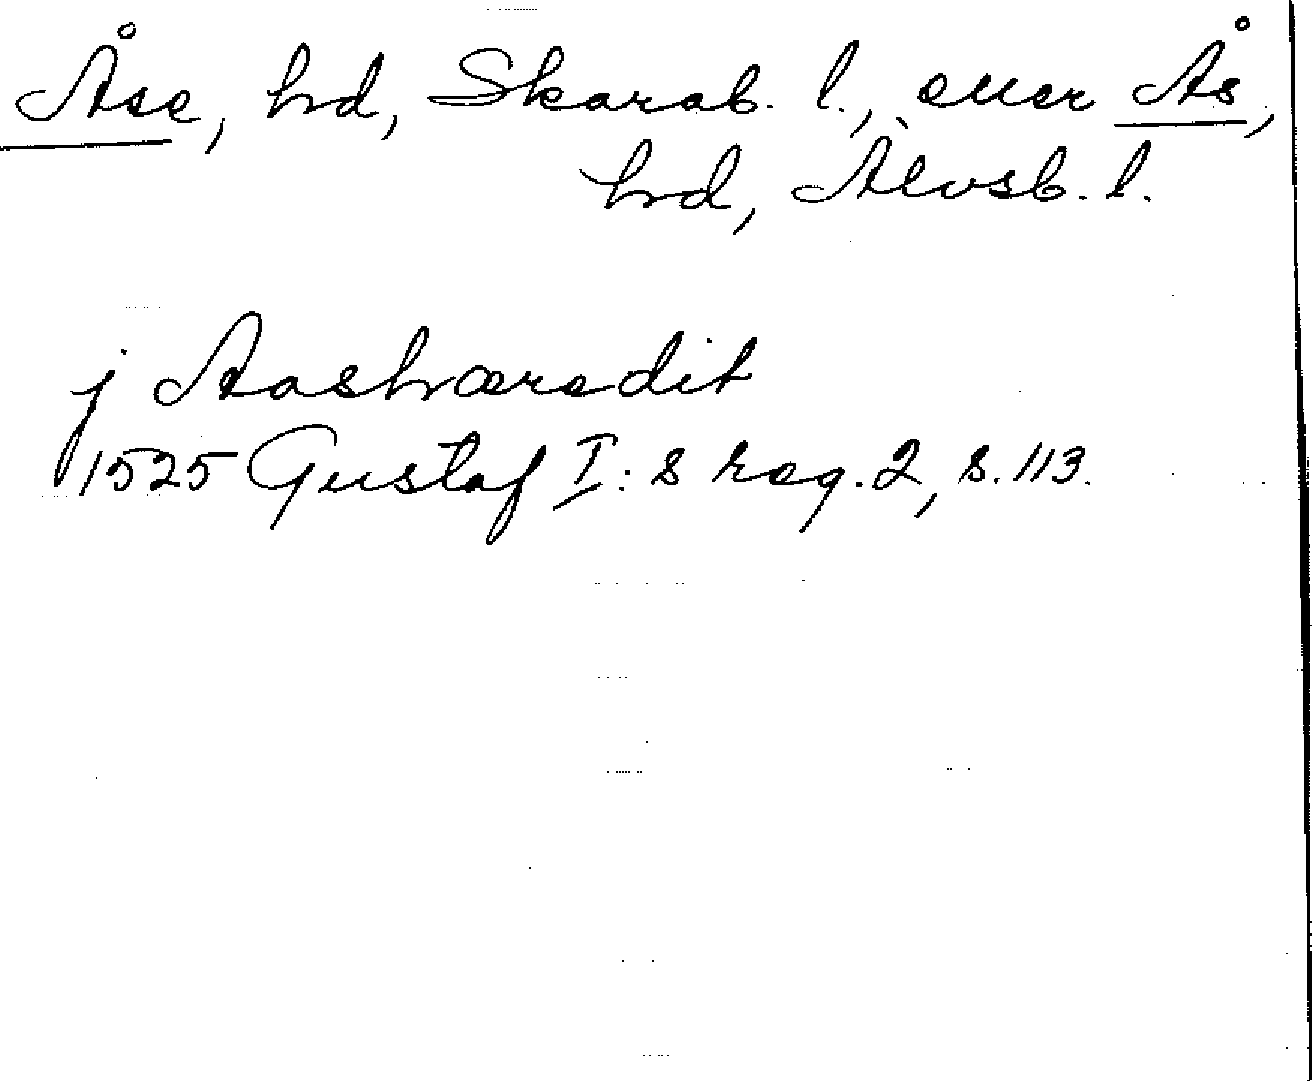 Åse, hd, Skarab. l., eller Ås,
hd, Älvsb. l.
j Aashæredit
1525 Gustaf I:s reg. 2, s. 113.